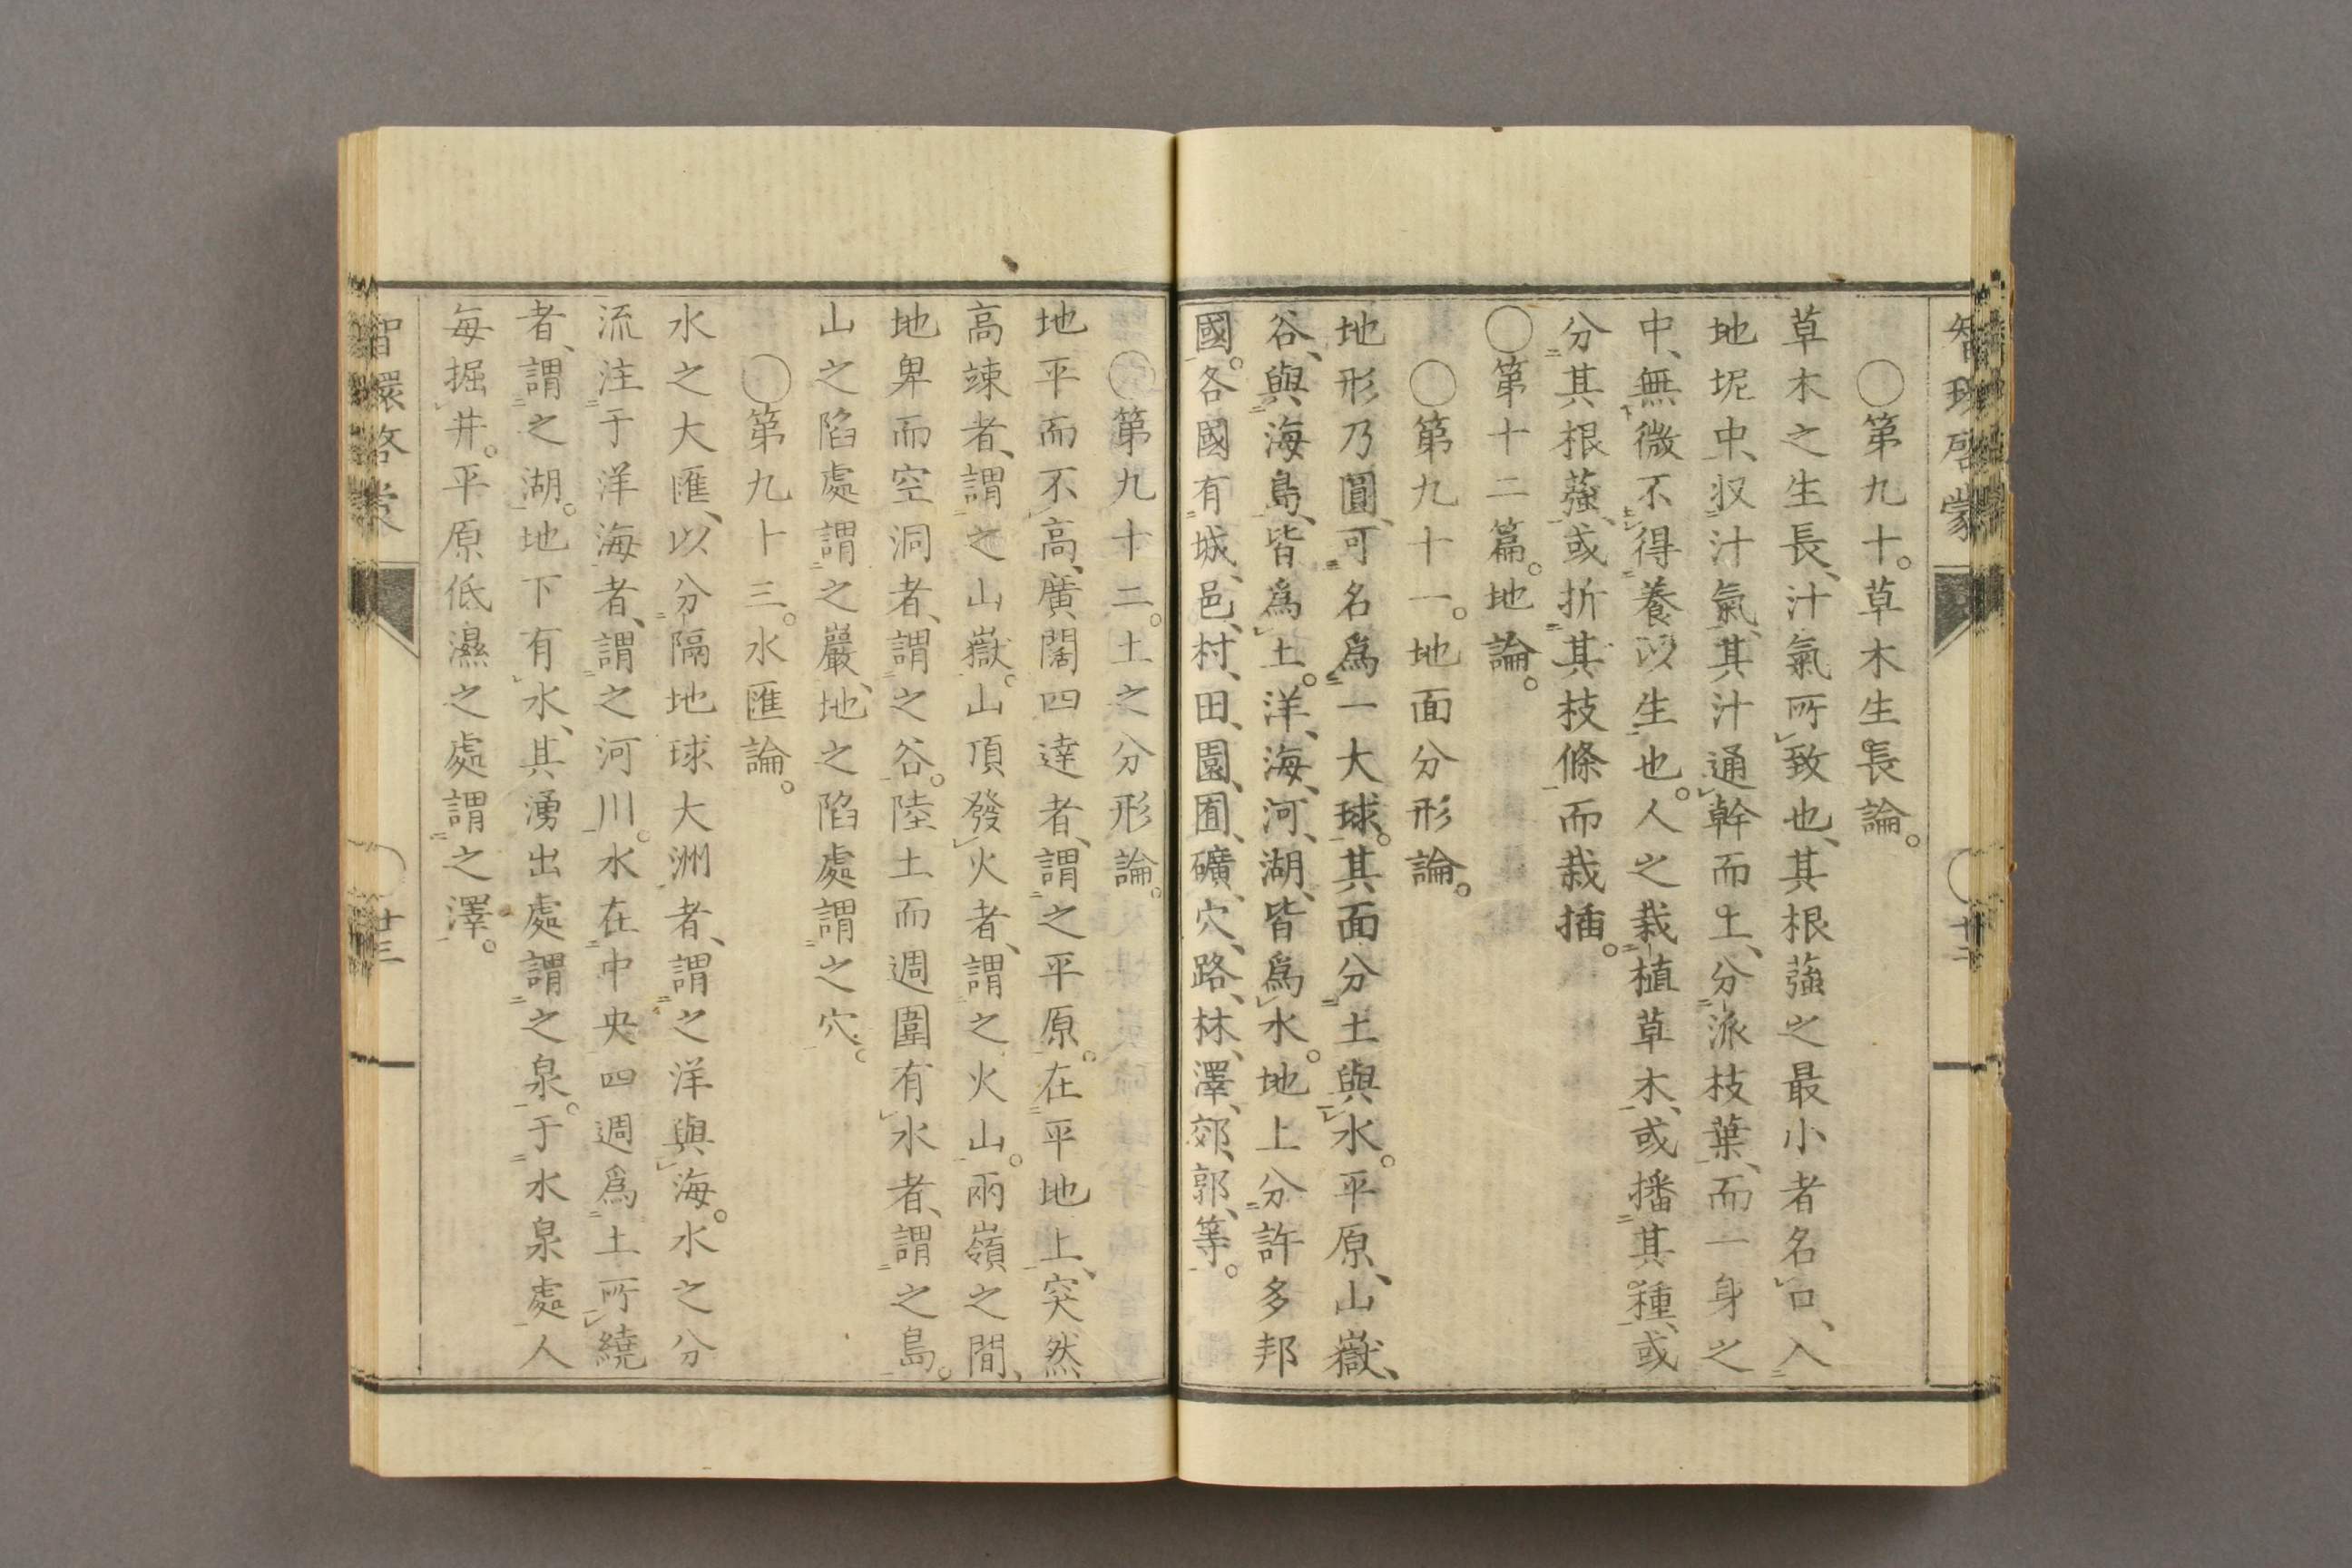 智環啓蒙
廿二
〇第九十。草木生長論。
草木之生長、汁氣所致也、其根蘊之最小者名口、入
地坭中、収汁氣、其汁通幹而上、分派枝葉、而一身之
中、無微不得養以生也。人之栽植草木、或播其種、或
分其根、或折其枝條而栽插。
〇第十二篇。地論。
〇第九十一。地面分形論。
地形乃圓、可名爲一大球。其面分土與水。平原、山嶽、
谷、與海島、皆爲土。洋、海、河、湖、皆爲水。地上分許多邦
國。各國有城、邑、村、田、園、囿、礦、穴、路、林、澤、郊、郭、等。
〇第九十二。土之分形論。
地平而不高、廣闊四達者、謂之平原。在平地上、突然
高竦者、謂之山嶽。山頂發火者、謂之火山。兩嶺之間、
地卑而空洞者、謂之谷。陸土而週圍有水者、謂之島。
山之陷處謂之巖、地之陷處謂之穴。
〇第九十三。水匯論。
水之大匯、以分隔地球大洲者、謂之洋與海。水之分
流注于洋海者、謂之河川。水在中央四週爲土所繞
者、謂之湖。地下有水、其湧出處謂之泉。于水泉處人
每掘井。平原低濕之處謂之澤。
智環啓蒙
廿三